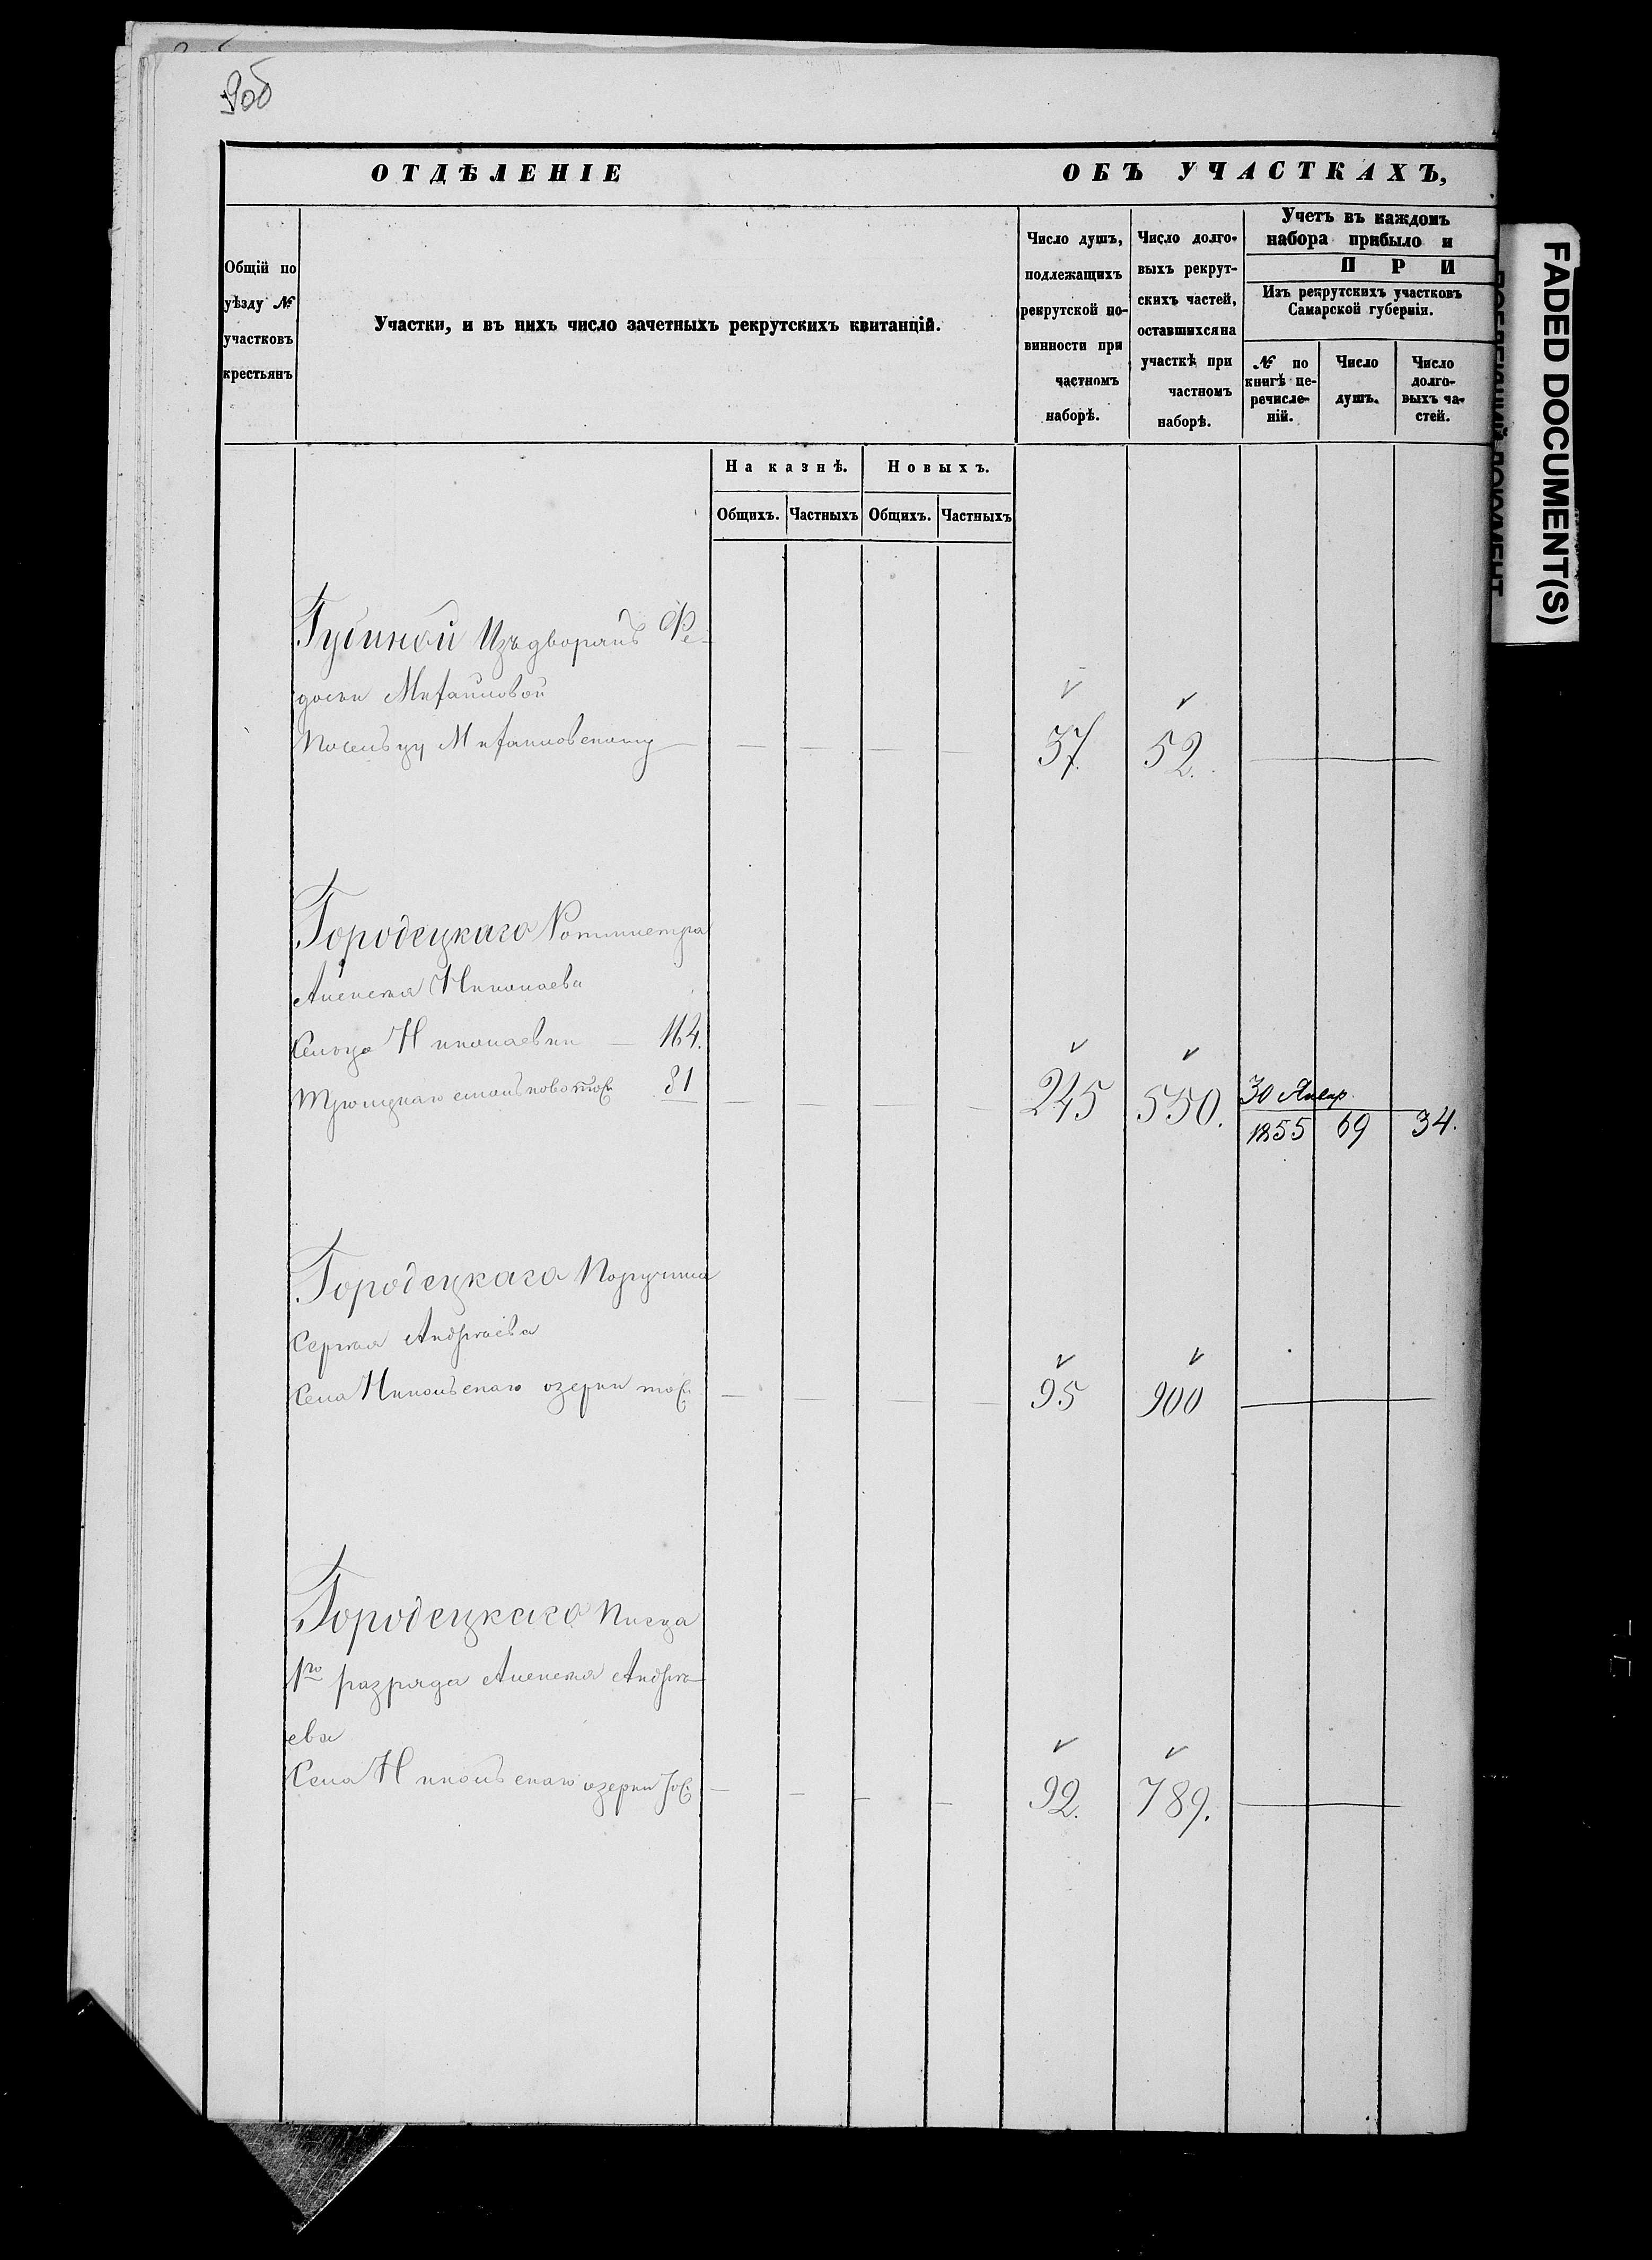 9об
ОТДѢЛЕНІЕ ОБЪ УЧАСТКАХЪ,
Общій по уѣзду № участковъ крестьянъ
Участки, и въ нихъ число зачетныхъ рекрутскихъ квитанцій.
Число душъ, подлежащихъ рекрутской по-винности при частномъ наборѣ.
Число долго-выхъ рекрут-скихъ частей, оставшихся на участкѣ при частномъ наборѣ.
Учетъ въ каждомъ
набора прибыло и
П Р И
Изъ рекрутскихъ участковъ
Самарской губерніи.
№ по книгѣ пе-речисле-ній.
Число душъ.
Число долго-выхъ ча-стей.
На казнѣ. Новыхъ.
Общихъ. Частныхъ Общихъ. Частныхъ
Губиной Изъ дворянъ Ѳе-
досьи Михайловой
Посельцу Михайловскому — — — — 37. 52.
Городецкаго Ротмистра
Алексѣя Николаева
Сельца Николаевки — 164.
Троицкаго 81 — — — — 245 550. 30 Янвр.
1855 69 34.
Городецкаго Поручика
Сергѣя Андреева
Села Никольскаго озерки тож — — — — 95 900
Городецкаго Писца
1го разряда Алексѣя Андре-
ева
Села Никольскаго озерки тож — — — — 92. 789.
FADED DOCUMENT(S)